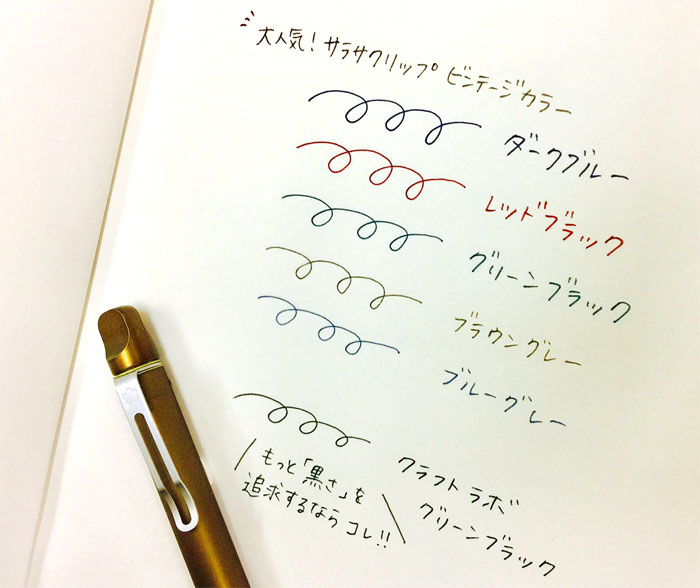 大人気！サラサクリップ ビンテージカラー
ダークブルー
レッドブラック
グリーンブラック
ブラウングレー
ブルーグレー
クラフトラボ
グリーンブラック
もっと「黒さ」を
追求するなら コレ!!